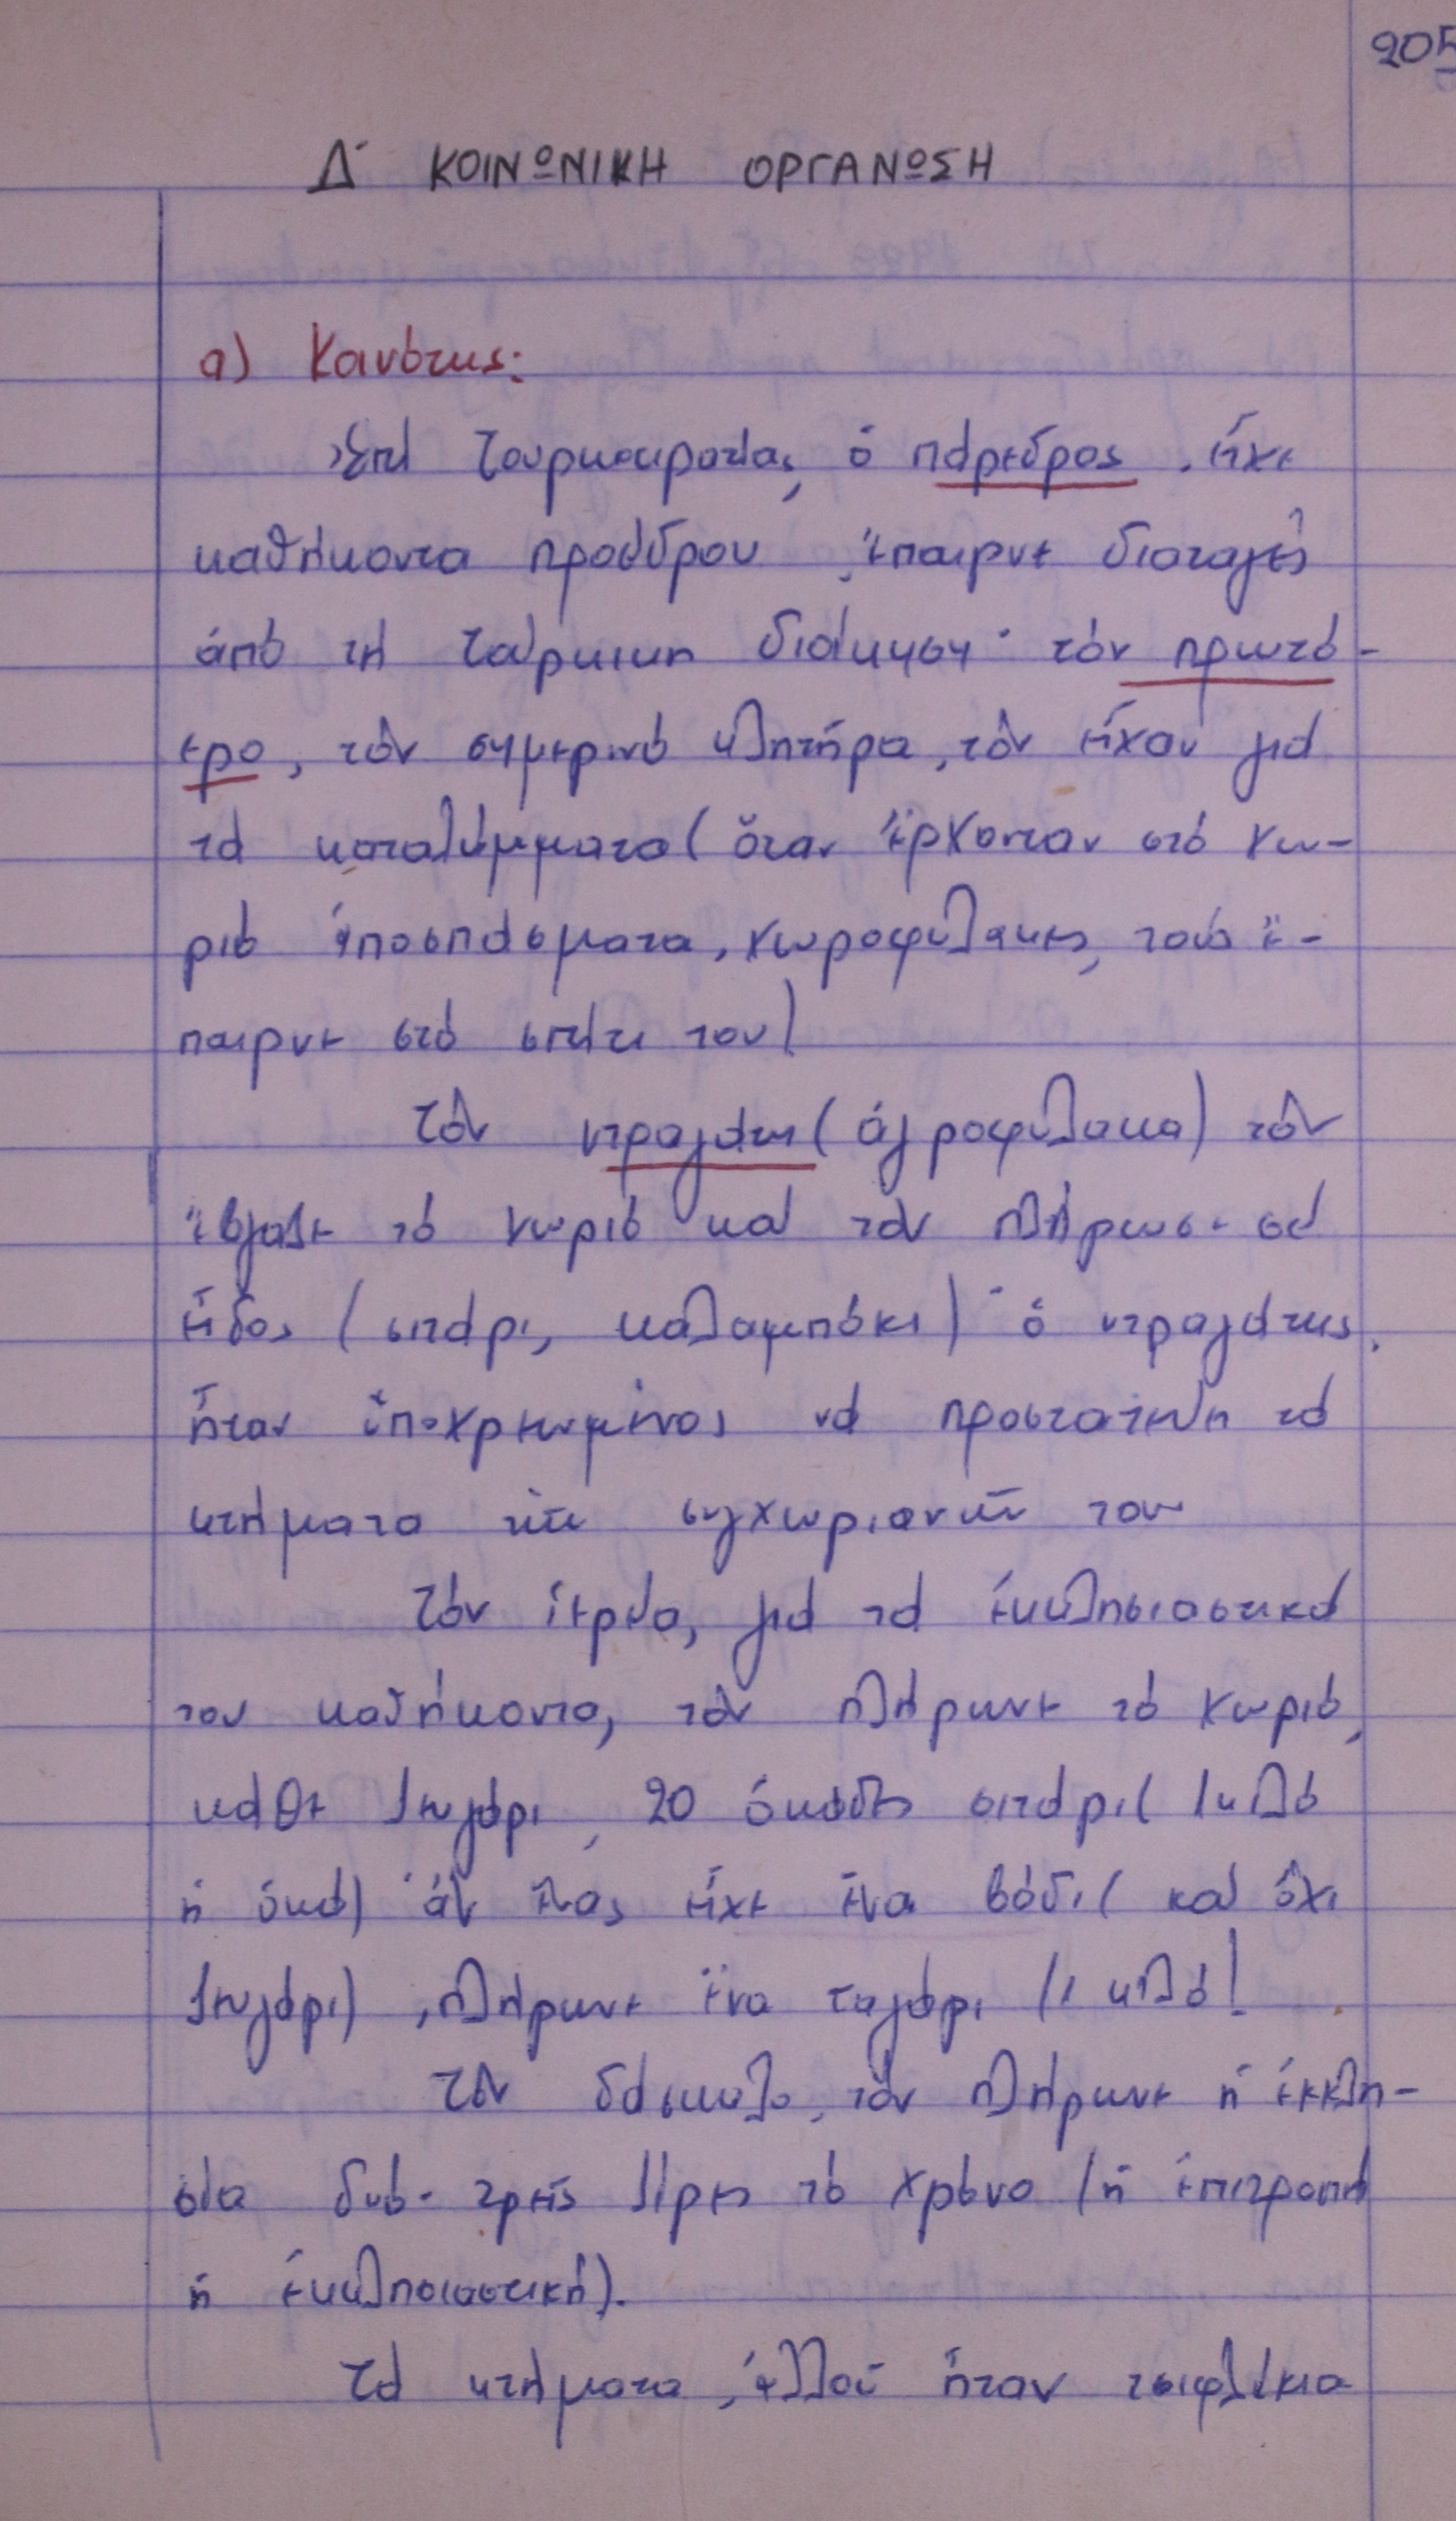 205
Δ΄ ΚΟΙΝΩΝΙΚΗ ΟΡΓΑΝΩΣΗ
α) Κανόνες:
Ἐπί Τουρκοκρατίας, ὁ πάρεδρος, εἶχε
καθήκοντα προέδρου, ἔπαιρνε διαταγές
ἀπό τή Τούρκικη διοίκηση· τόν πρωτό-
ερο, τόν σημερινό κλητήρα, τόν εἶχαν γιά
τά καταλύμματα (ὅταν ἔρχονταν στό χω-
ριό ἀποσπάσματα, χωροφύλακες, τούς ἔ-
παιρνε στό σπίτι του)
Τόν ντραγάτη (ἀγροφύλακα) τόν
ἔβγαζε τό χωριό καί τόν πλήρωσε σέ
εἶδος (σιτάρι, καλαμπόκι)· ὁ ντραγάτης,
ἦταν ὑποχρεωμένος νά προστατεύη τά
κτήματα τῶν συγχωριανῶν του
Τόν ἱερέα, γιά τά ἐκκλησιαστικά
του καθήκοντα, τόν πλήρωνε τό χωριό,
κάθε ζευγάρι, 20 ὀκάδες σιτάρι (1 κιλό
ἡ ὀκά)· ἄν ἕνας εἶχε ἕνα βόδι (καί ὄχι
ζευγάρι), πλήρωνε ἕνα ταγάρι (1 κιλό!
Τόν δάσκαλο, τόν πλήρωνε ἡ ἐκκλη-
σία δυό - τρεῖς λίρες τό χρόνο (ἡ ἐπιτροπή
ἡ ἐκκλησιαστική).
Τά κτήματα, ἀλλοῦ ἦταν τσιφλίκια